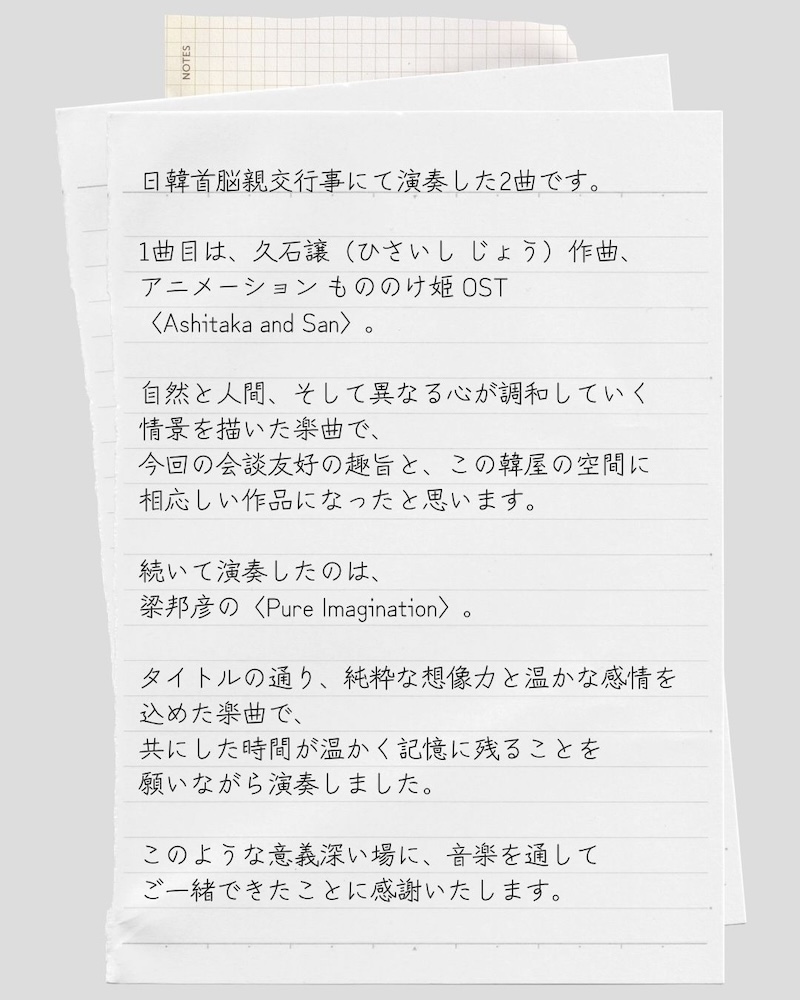 NOTES
日韓首脳親交行事にて演奏した2曲です。
1曲目は、久石譲（ひさいし じょう）作曲、
アニメーション もののけ姫 OST
〈Ashitaka and San〉。
自然と人間、そして異なる心が調和していく
情景を描いた楽曲で、
今回の会談友好の趣旨と、この韓屋の空間に
相応しい作品になったと思います。
続いて演奏したのは、
梁邦彦の〈Pure Imagination〉。
タイトルの通り、純粋な想像力と温かな感情を
込めた楽曲で、
共にした時間が温かく記憶に残ることを
願いながら演奏しました。
このような意義深い場に、音楽を通して
ご一緒できたことに感謝いたします。